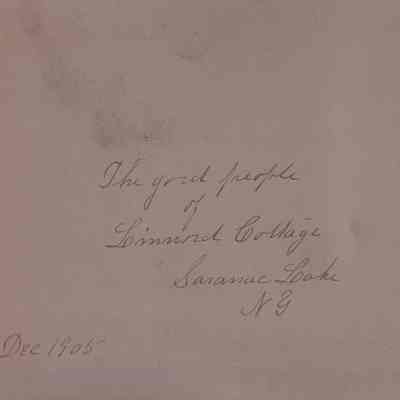 The good people
of
Linwood Cottage
Saranac Lake
N Y
Dec 1905